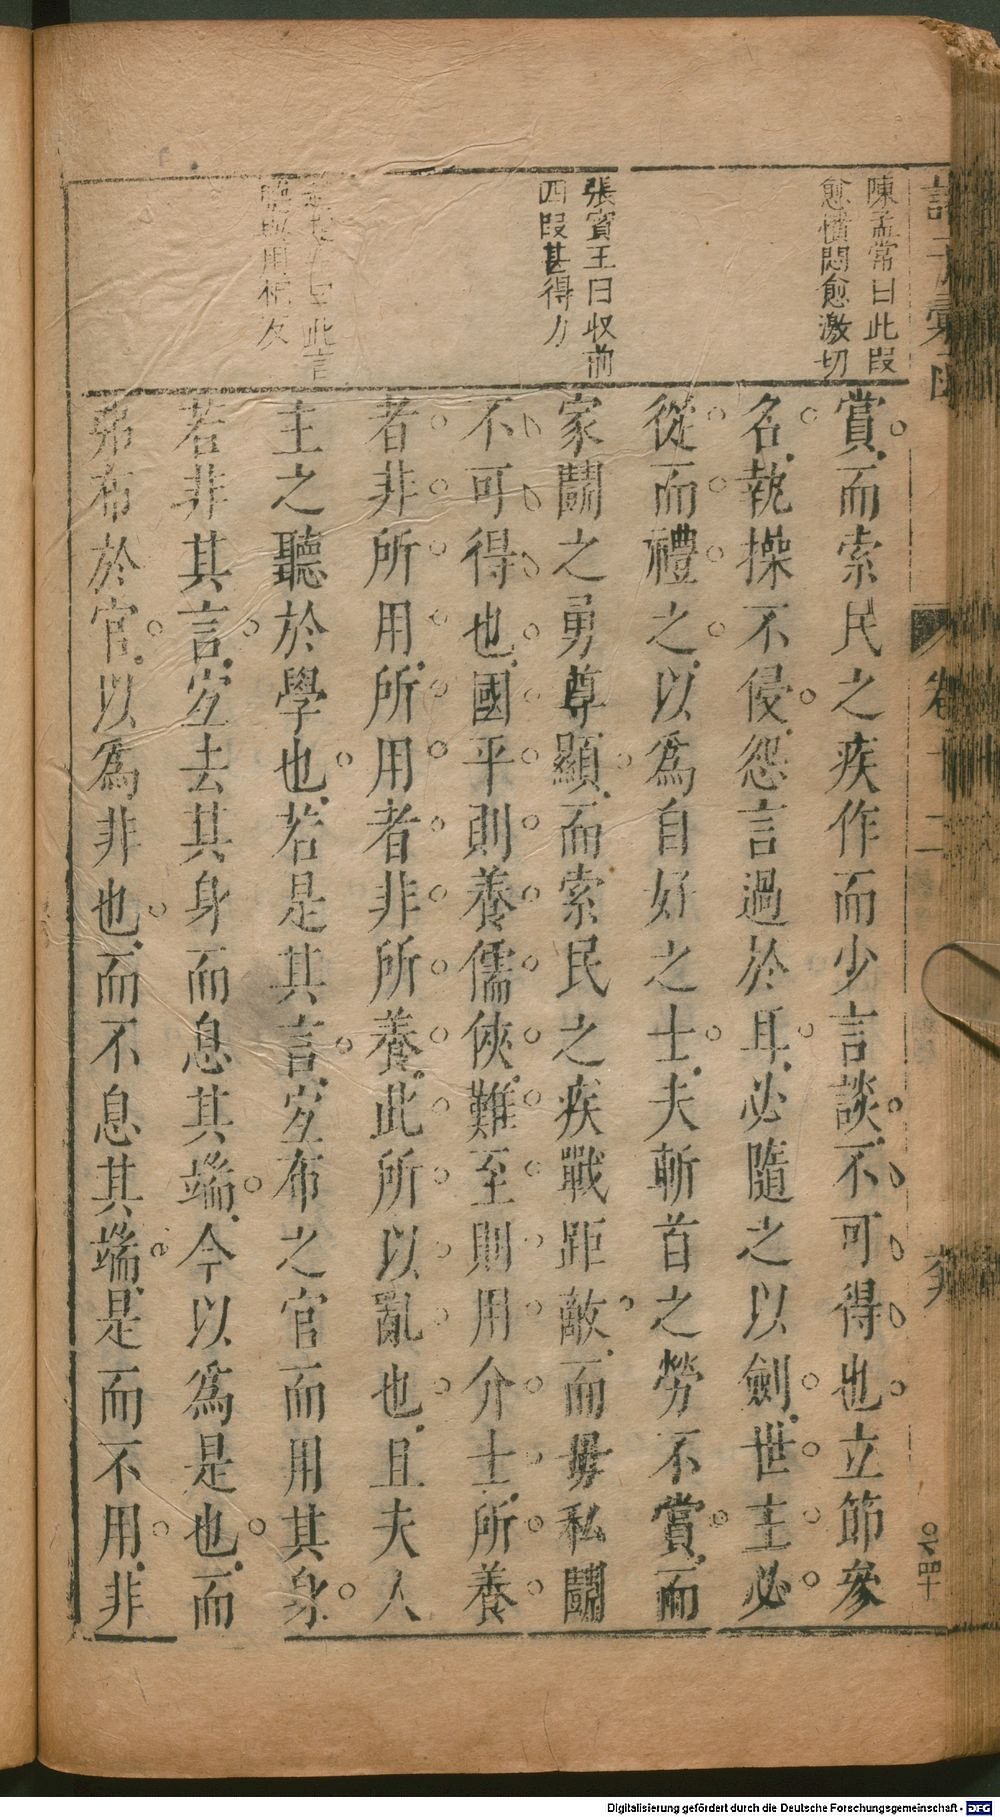 陳孟常曰此段
愈憤悶愈激切
張賓王曰收前
四段甚得力
曰此言
用
賞而索民之疾作而少言談不可得也立節參
名執操不侵怨言過於耳必隨之以劍世主必
從而禮之以為自好之士夫斬首之勞不賞而
家鬭之勇尊顯而索民之疾戰距敵而毋私鬭
不可得也國平則養儒俠難至則用介士所養
者非所用所用者非所養此所以亂也且夫人
主之聽於學也若是其言宜布之官而用其身
若非其言宜去其身而息其端今以為是也而
弗布於官以為非也而不息其端是而不用非
卷十二
Digitalisierung gefördert durch die Deutsche Forschungsgemeinschaft - DFG